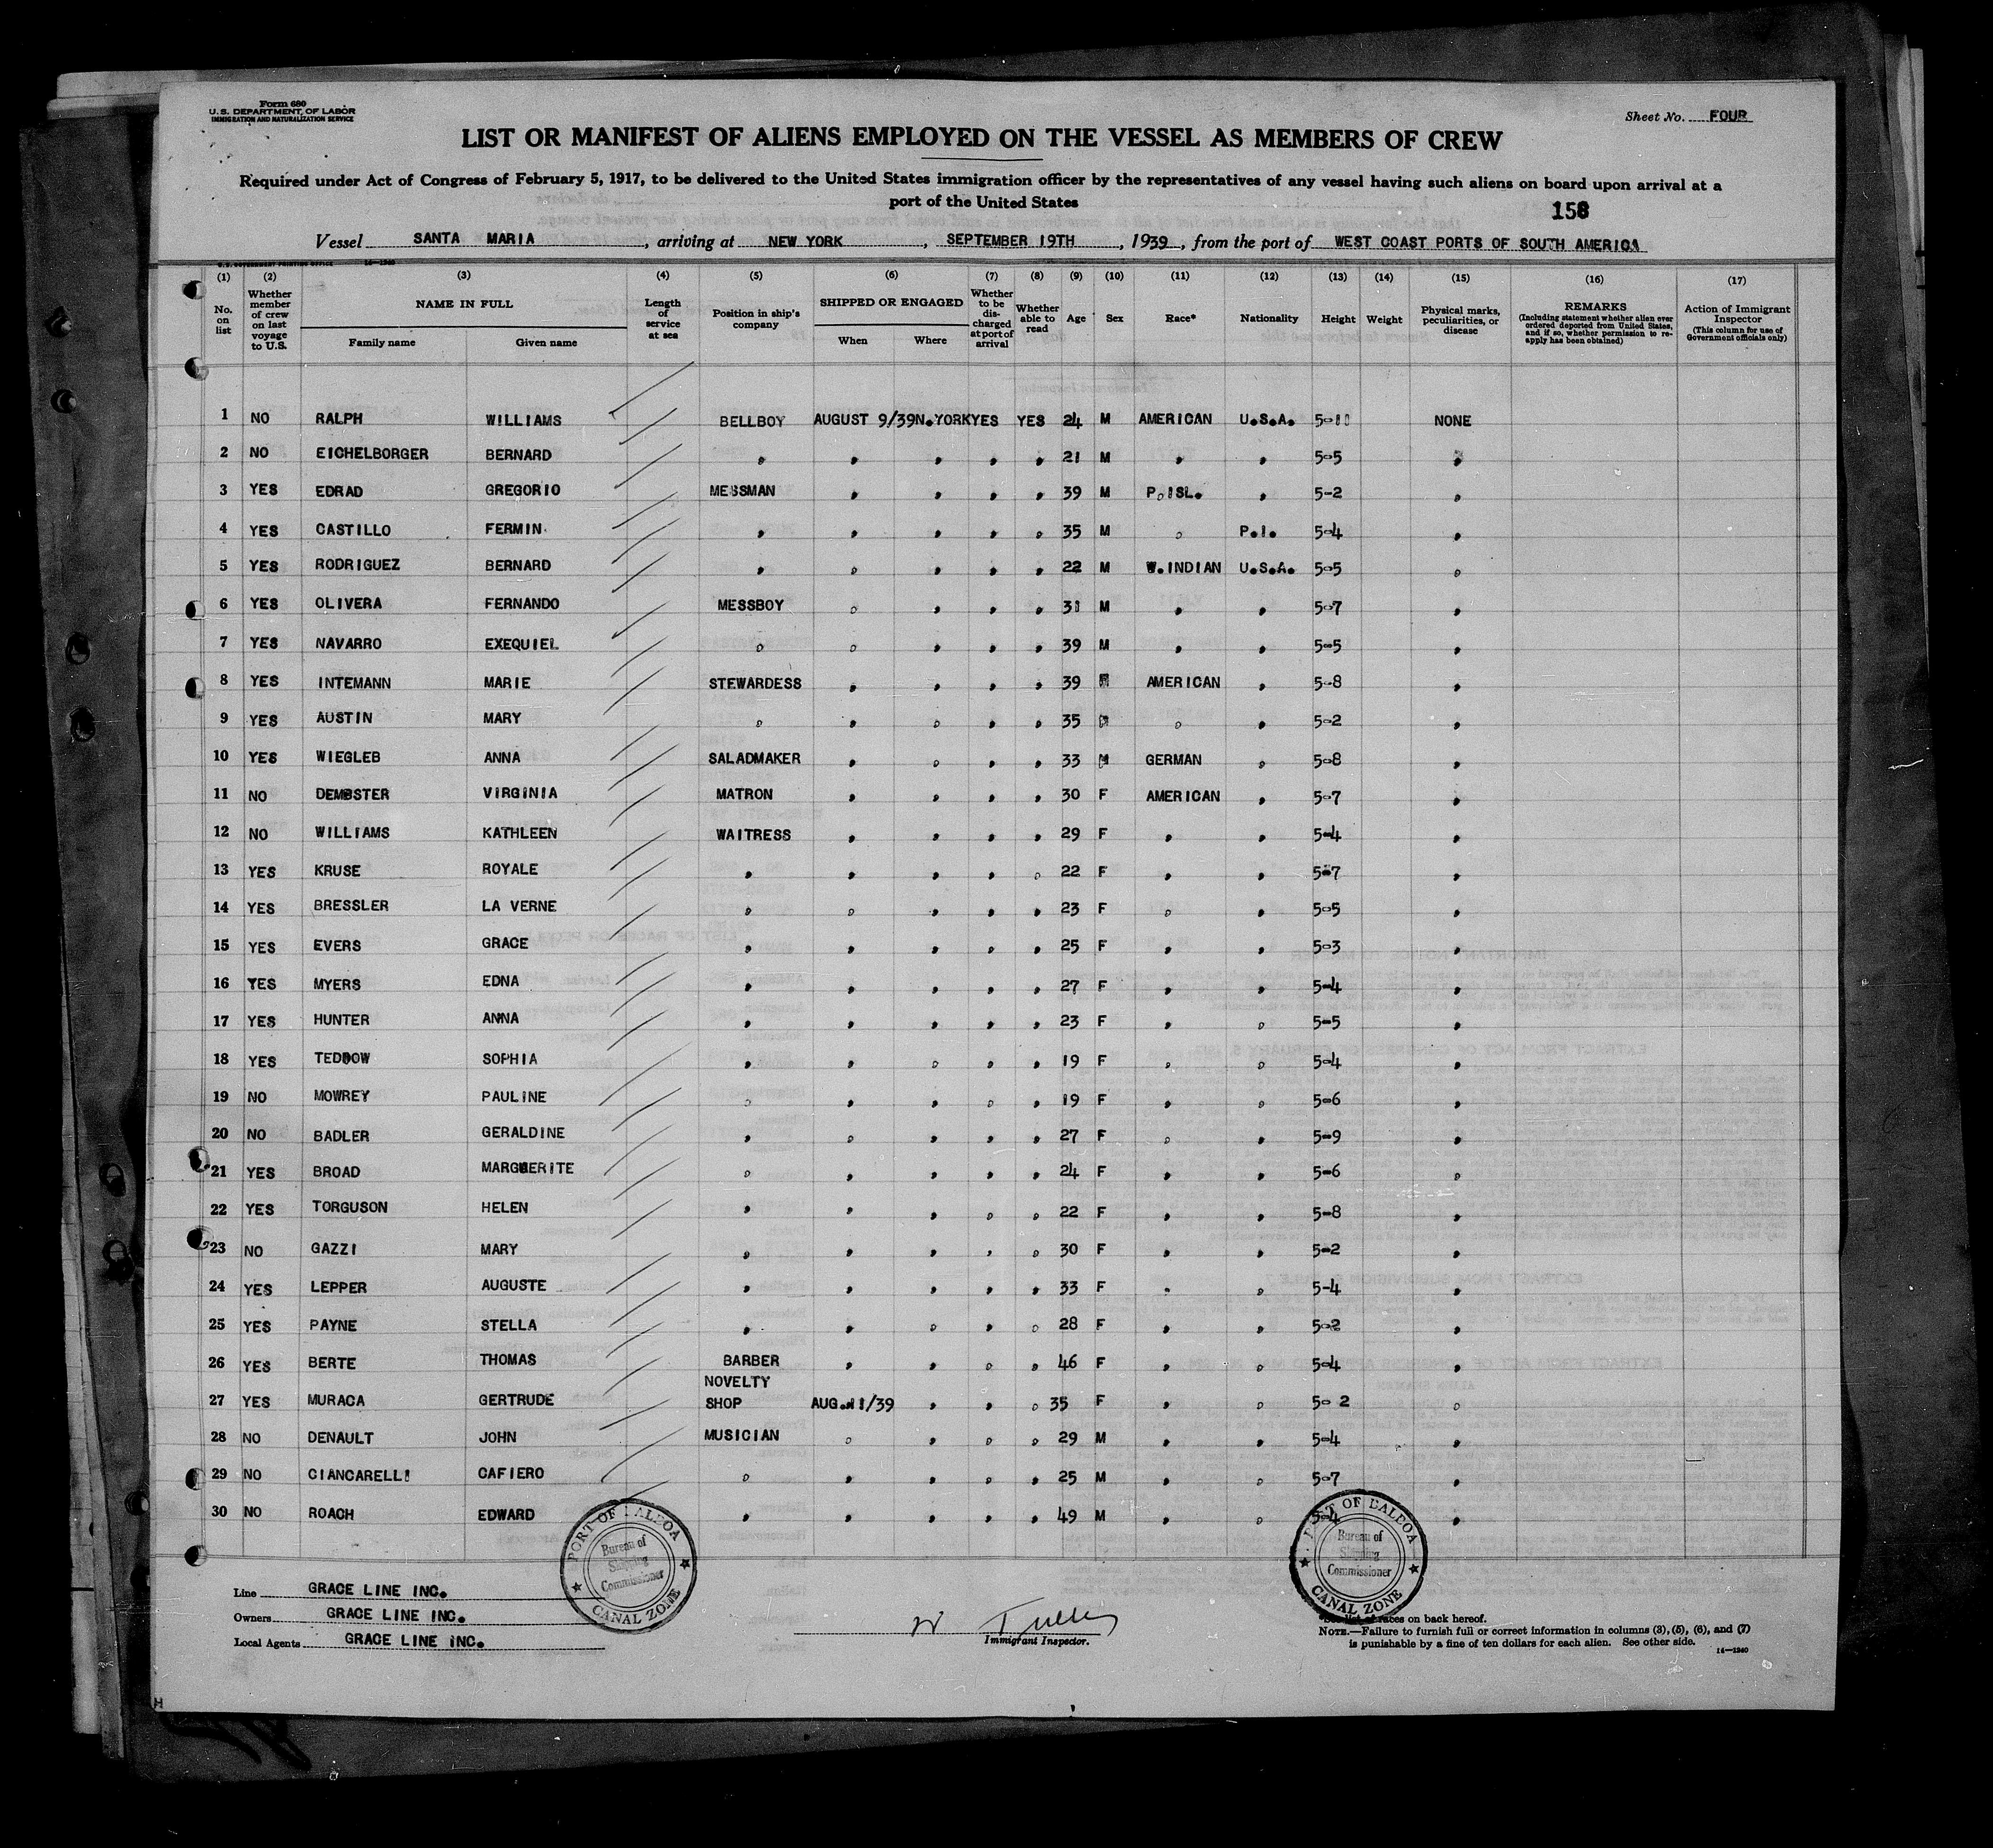 Form 680
U.S. DEPARTMENT OF LABOR
IMMIGRATION AND NATURALIZATION SERVICE
Sheet No. FOUR
LIST OR MANIFEST OF ALIENS EMPLOYED ON THE VESSEL AS MEMBERS OF CREW
Required under Act of Congress of February 5, 1917, to be delivered to the United States immigration officer by the representatives of any vessel having such aliens on board upon arrival at a
port of the United States
158
Vessel SANTA MARIA, arriving at NEW YORK, SEPTEMBER 19TH, 1939, from the port of WEST COAST PORTS OF SOUTH AMERICA
U.S. GOVERNMENT PRINTING OFFICE 14—1240
(1) No. on list
(2) Whether member of crew on last voyage to U.S.
(3) NAME IN FULL Family name Given name
(4) Length of service at sea
(5) Position in ship's company
(6) SHIPPED OR ENGAGED When Where
(7) Whether to be discharged at port of arrival
(8) Whether able to read
(9) Age
(10) Sex
(11) Race*
(12) Nationality
(13) Height
(14) Weight
(15) Physical marks, peculiarities, or disease
(16) REMARKS (Including statement whether alien ever ordered deported from United States, and if so, whether permission to re-apply has been obtained)
(17) Action of Immigrant Inspector (This column for use of Government officials only)
1 NO RALPH WILLIAMS BELLBOY AUGUST 9/39 N.YORK YES YES 24 M AMERICAN U.S.A. 5-11 NONE
2 NO EICHELBORGER BERNARD " " " " " 21 M " " 5-5 "
3 YES EDRAD GREGORIO MESSMAN " " " " 39 M P.ISL. " 5-2 "
4 YES CASTILLO FERMIN " " " " " 35 M " P.I. 5-4 "
5 YES RODRIGUEZ BERNARD " " " " " 22 M W.INDIAN U.S.A. 5-5 "
6 YES OLIVERA FERNANDO MESSBOY " " " " 31 M " " 5-7 "
7 YES NAVARRO EXEQUIEL " " " " " 39 M " " 5-5 "
8 YES INTEMANN MARIE STEWARDESS " " " " 39 AMERICAN " 5-8 "
9 YES AUSTIN MARY " " " " " 35 " " 5-2 "
10 YES WIEGLEB ANNA SALADMAKER " " " " 33 M GERMAN " 5-8 "
11 NO DEMBSTER VIRGINIA MATRON " " " " 30 F AMERICAN " 5-7 "
12 NO WILLIAMS KATHLEEN WAITRESS " " " " 29 F " " 5-4 "
13 YES KRUSE ROYALE " " " " " 22 F " " 5-7 "
14 YES BRESSLER LA VERNE " " " " " 23 F " " 5-5 "
15 YES EVERS GRACE " " " " " 25 F " " 5-3 "
16 YES MYERS EDNA " " " " " 27 F " " 5-4 "
17 YES HUNTER ANNA " " " " " 23 F " " 5-5 "
18 YES TEDDOW SOPHIA " " " " " 19 F " " 5-4 "
19 NO MOWREY PAULINE " " " " " 19 F " " 5-6 "
20 NO BADLER GERALDINE " " " " " 27 F " " 5-9 "
21 YES BROAD MARGUERITE " " " " " 24 F " " 5-6 "
22 YES TORGUSON HELEN " " " " " 22 F " " 5-8 "
23 NO GAZZI MARY " " " " " 30 F " " 5-2 "
24 YES LEPPER AUGUSTE " " " " " 33 F " " 5-4 "
25 YES PAYNE STELLA " " " " " 28 F " " 5-2 "
26 YES BERTE THOMAS BARBER " " " " 46 F " " 5-4 "
27 YES MURACA GERTRUDE NOVELTY SHOP AUG.11/39 " " " 35 F " " 5-2 "
28 NO DENAULT JOHN MUSICIAN " " " " 29 M " " 5-4 "
29 NO CIANCARELLI CAFIERO " " " " " 25 M " " 5-7 "
30 NO ROACH EDWARD " " " " " 49 M " " 5-4 "
PORT OF BALBOA
Bureau of
Shipping
Commissioner
CANAL ZONE
PORT OF BALBOA
Bureau of
Shipping
Commissioner
CANAL ZONE
Line GRACE LINE INC.
Owners GRACE LINE INC.
Local Agents GRACE LINE INC.
Immigrant Inspector.
*See list of races on back hereof.
NOTE.—Failure to furnish full or correct information in columns (3), (5), (6), and (7)
is punishable by a fine of ten dollars for each alien. See other side.
14—1240
H